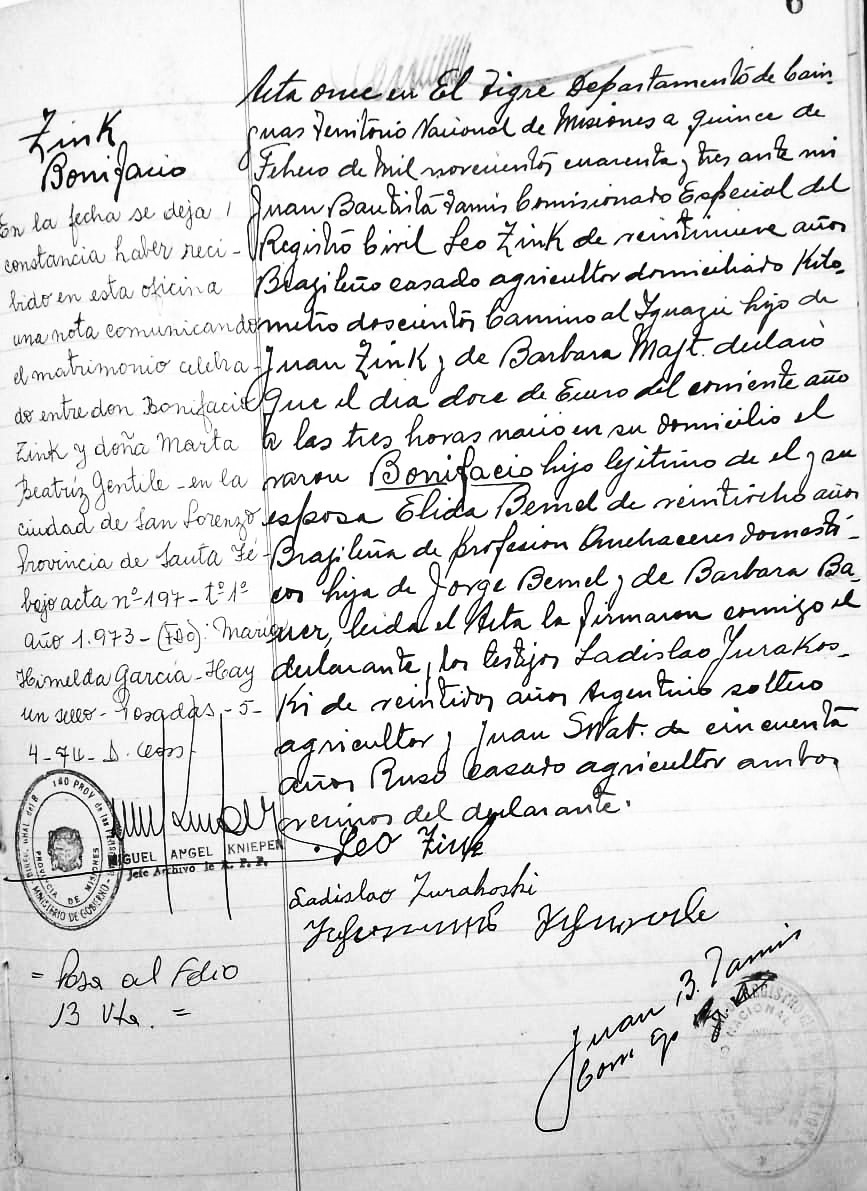 6
Zink
Bonifacio
En la fecha se deja
constancia haber reci-
bido en esta oficina
una nota comunicando
el matrimonio celebra-
do entre don Bonifacio
Zink y doña Marta
Beatríz Gentile - en la
ciudad de San Lorenzo
Provincia de Santa Fé -
bajo acta nº 197 - tº 1º
año 1.973 - (FDO): Maria
Himelda García - Hay
un sello - Posadas - 5 -
4 - 74 - D.
MIGUEL ANGEL KNIEPER
Jefe Archivo de R. P. P.
PROVINCIA DE MISIONES
MINISTERIO DE GOBIERNO
= Pasa al Folio
13 Vta. =
Acta once en El Tigre Departamento de Cain-
guas Territorio Nacional de Misiones a quince de
Febrero de Mil novecientos cuarenta y tres ante mi
Juan Bautista Tamis Comisionado Especial del
Registro Civil Leo Zink de veintinueve años
Brazileño casado agricultor domiciliado Kilo-
metro doscientos Camino al Iguazú hijo de
Juan Zink y de Barbara Mast. declaró
que el dia doce de Enero del corriente año
a las tres horas nació en su domicilio el
varon Bonifacio hijo legitimo de el y su
esposa Elida Bemel de veintiocho años
Brazileña de Profesion Quehaceres domesti-
cos hija de Jorge Bemel y de Barbara Ba-
uer, leida el Acta la firmaron conmigo el
declarante y los testigos Ladislao Jurakos-
ki de veintidos años Argentino soltero
agricultor y Juan Swat. de cincuenta
años Ruso casado agricultor ambos
vecinos del declarante.
Leo Zink
Ladislao Zurakoski
Juan B. Tamis
Com.